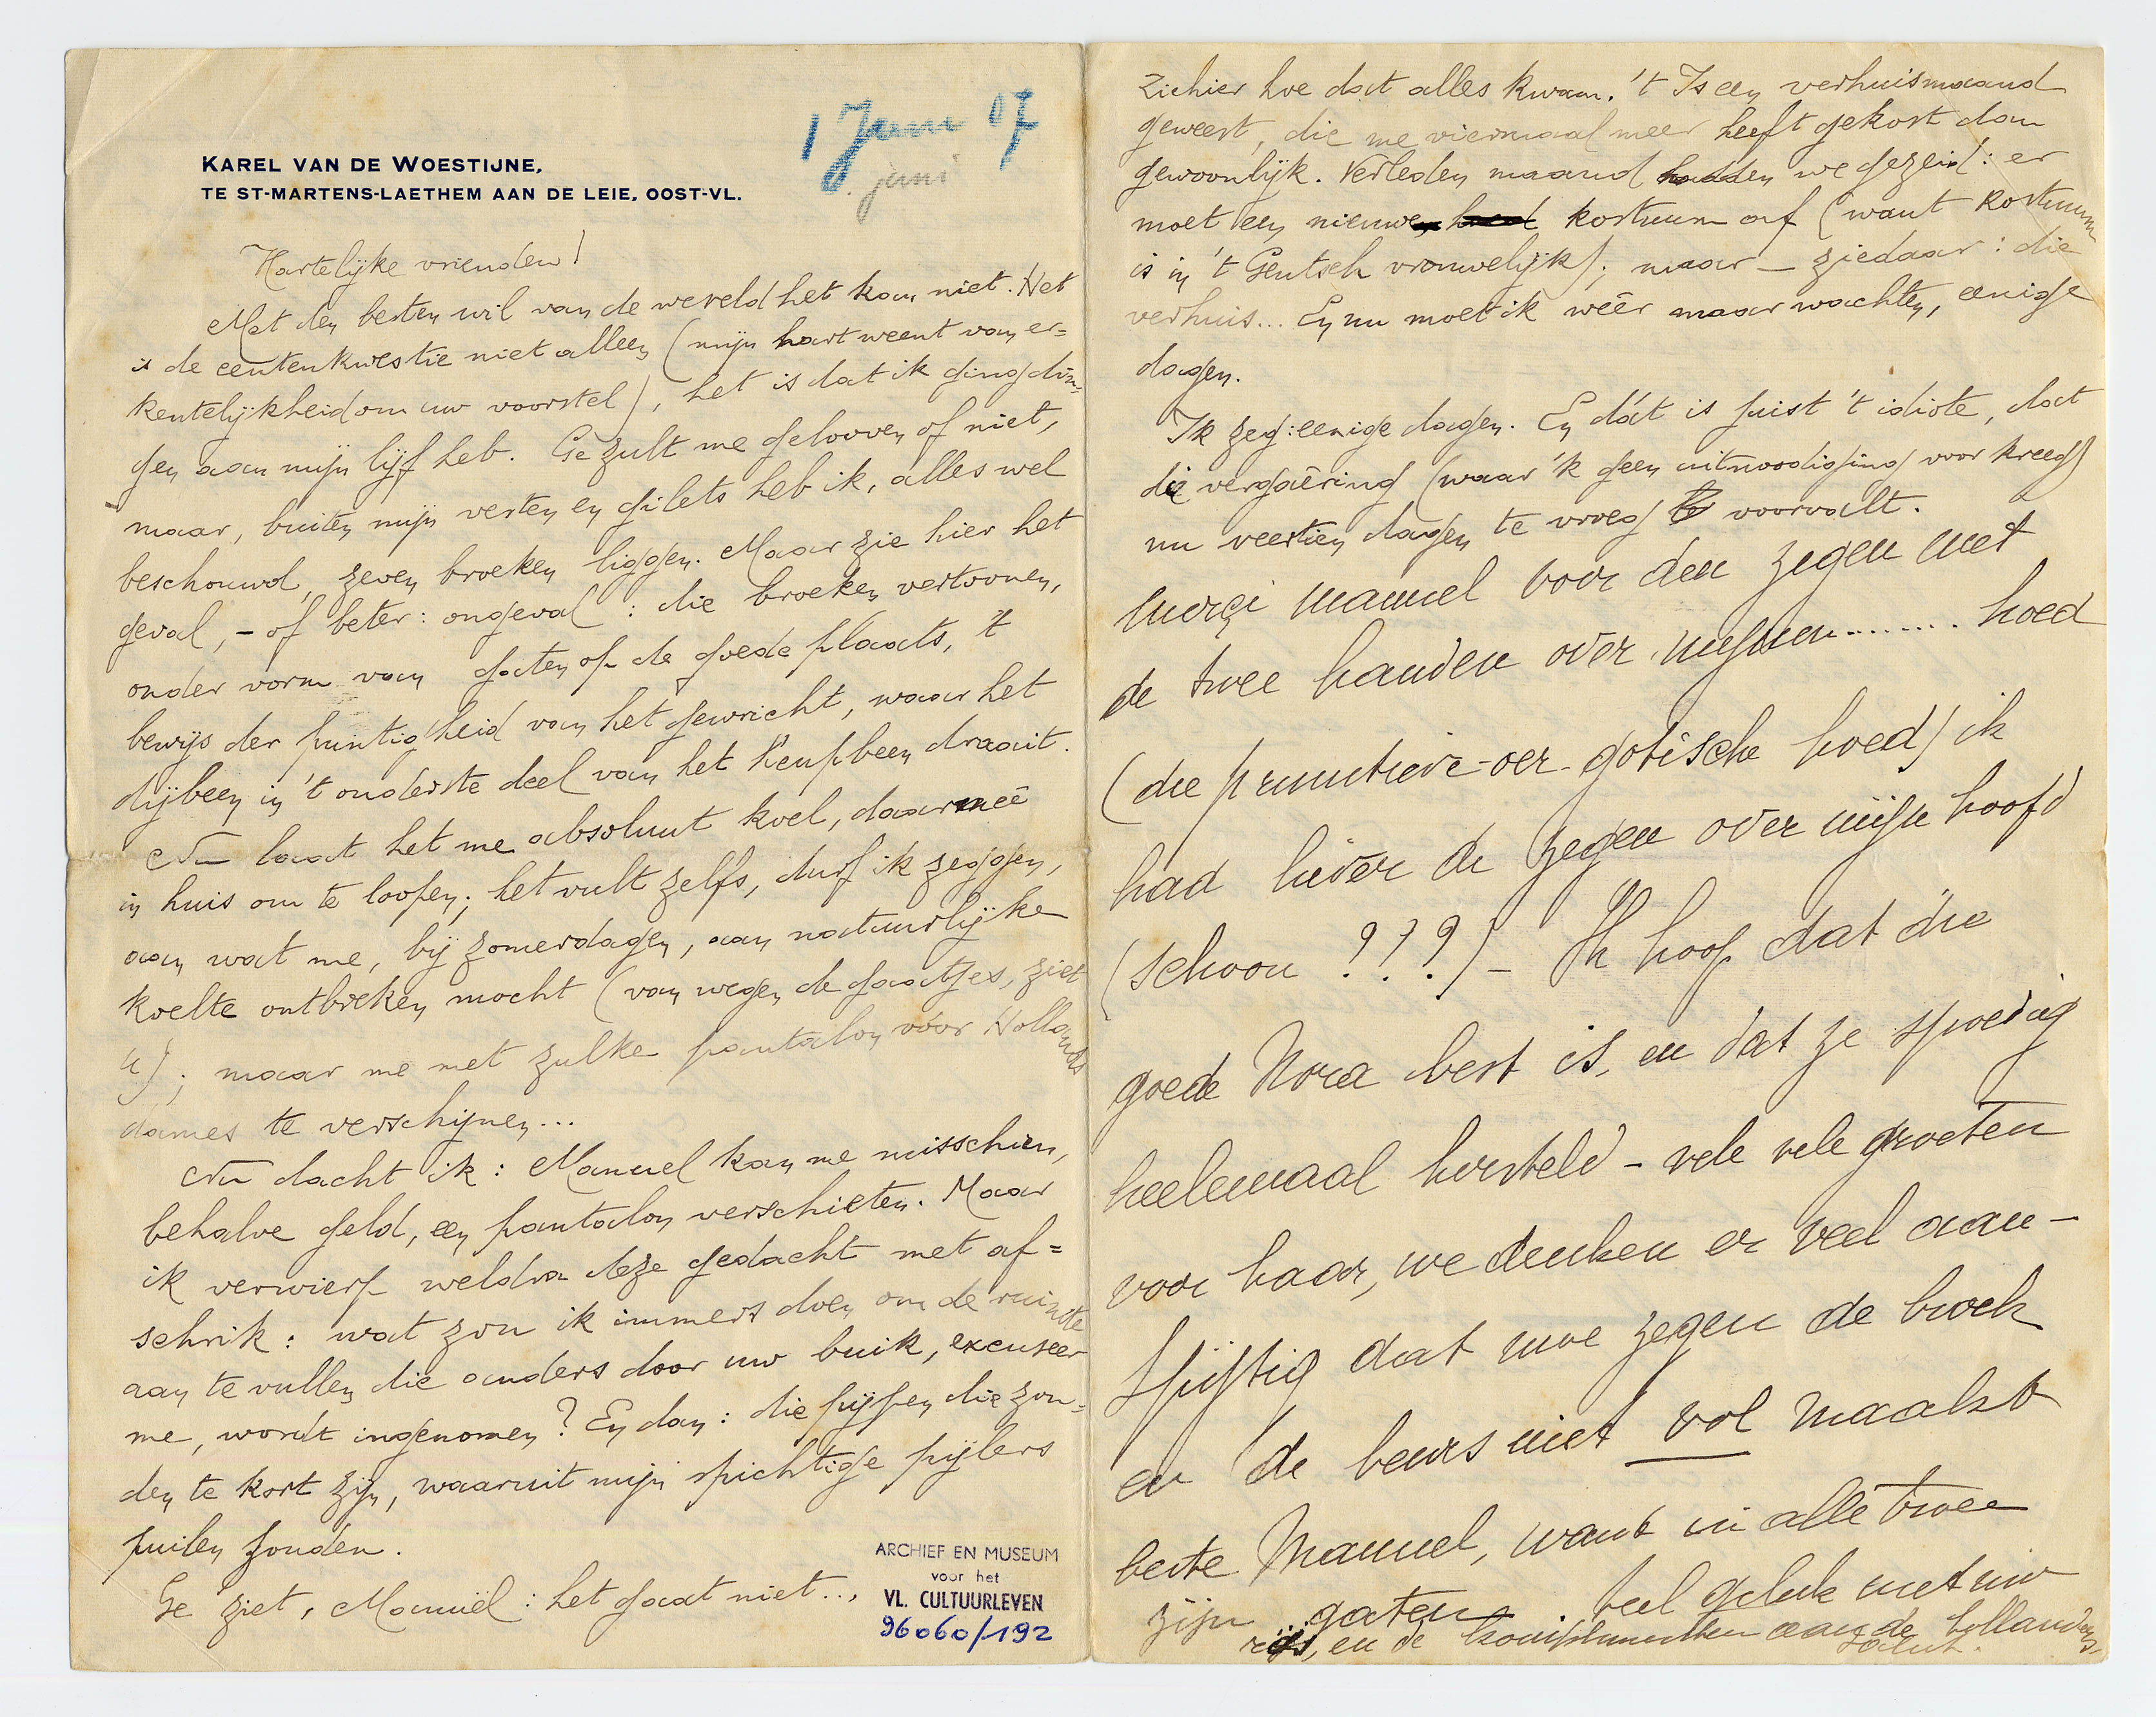 KAREL VAN DE WOESTIJNE,
TE ST-MARTENS-LAETHEM AAN DE LEIE, OOST-VL.
1 Juni 07
juni
Hartelijke vrienden!
Met den besten wil van de wereld het kan niet. Het
is de centenkwestie niet alleen (mijn hart weent van er=
kentelijkheid om uw voorstel), het is dat ik ging din-
gen aan mijn lijf heb. Ge zult me gelooven of niet,
maar, buiten mijn vesten en gilets heb ik, alles wel
beschouwd, zeven broeken liggen. Maar zie hier het
geval, - of beter: ongeval: die broeken vertoonen,
onder vorm van gaten op de goede plaats, 't
bewijs der puntigheid van het gewricht, waar het
dijbeen in 't onderste deel van het heupbeen draait.
Nu laat het me absoluut koel, daarmeê
in huis om te loopen; het vult zelfs, durf ik zeggen,
aan wat me, bij zomerdagen, aan natuurlijke
koelte ontbreken mocht (van wegen de gaatjes, ziet
u); maar me met zulke pantalon vóor Hollands
dames te verschijnen...
Nu dacht ik: Manuel kan me misschien,
behalve geld, een pantalon verschieten. Maar
ik verwierp weldra deze gedacht met af=
schrik: wat zou ik immers doen om de ruimte
aan te vullen die anders door uw buik, excuseer
me, wordt ingenomen? En dan: die pijpen die zou=
den te kort zijn, waaruit mijn spichtige pijlers
puilen zouden.
Ge ziet, Manuël: het gaat niet...
ARCHIEF EN MUSEUM
voor het
VL. CULTUURLEVEN
96060/192
Ziehier hoe dat alles kwam. 't Is een verhuismaand
geweest, die me viermaal meer heeft gekost dan
gewoonlijk. Verleden maand hadden we gezeid: er
moet een nieuwe kostuum af (want kostuum
is in 't Gentsch vrouwelijk); maar — ziedaar: die
verhuis... En nu moet ik wêer maar wachten, eenige
dagen.
Ik zeg: eenige dagen. En dát is juist 't idiote, dat
die vergaêring (waar 'k geen uitnoodiging voor kreeg)
nu veertien dagen te vroeg voorvalt.
merçi manuel voor den zegen met
de twee handen over mijnen........ hoed
(die primitieve-oer-gotische hoed) ik
had liever de zegen over mijn hoofd
(schoon ???) - Ik hoop dat die
goede Nora best is, en dat ze spoedig
heelemaal hersteld - vele vele groeten
voor haar, we denken er veel aan -
spijtig dat uwe zegen de broek
en de beurs niet vol maakt
beste Manuel, want in alle twee
zijn gaten veel geluk met uw
reis, en de komplimenten aan de hollanders
salut.